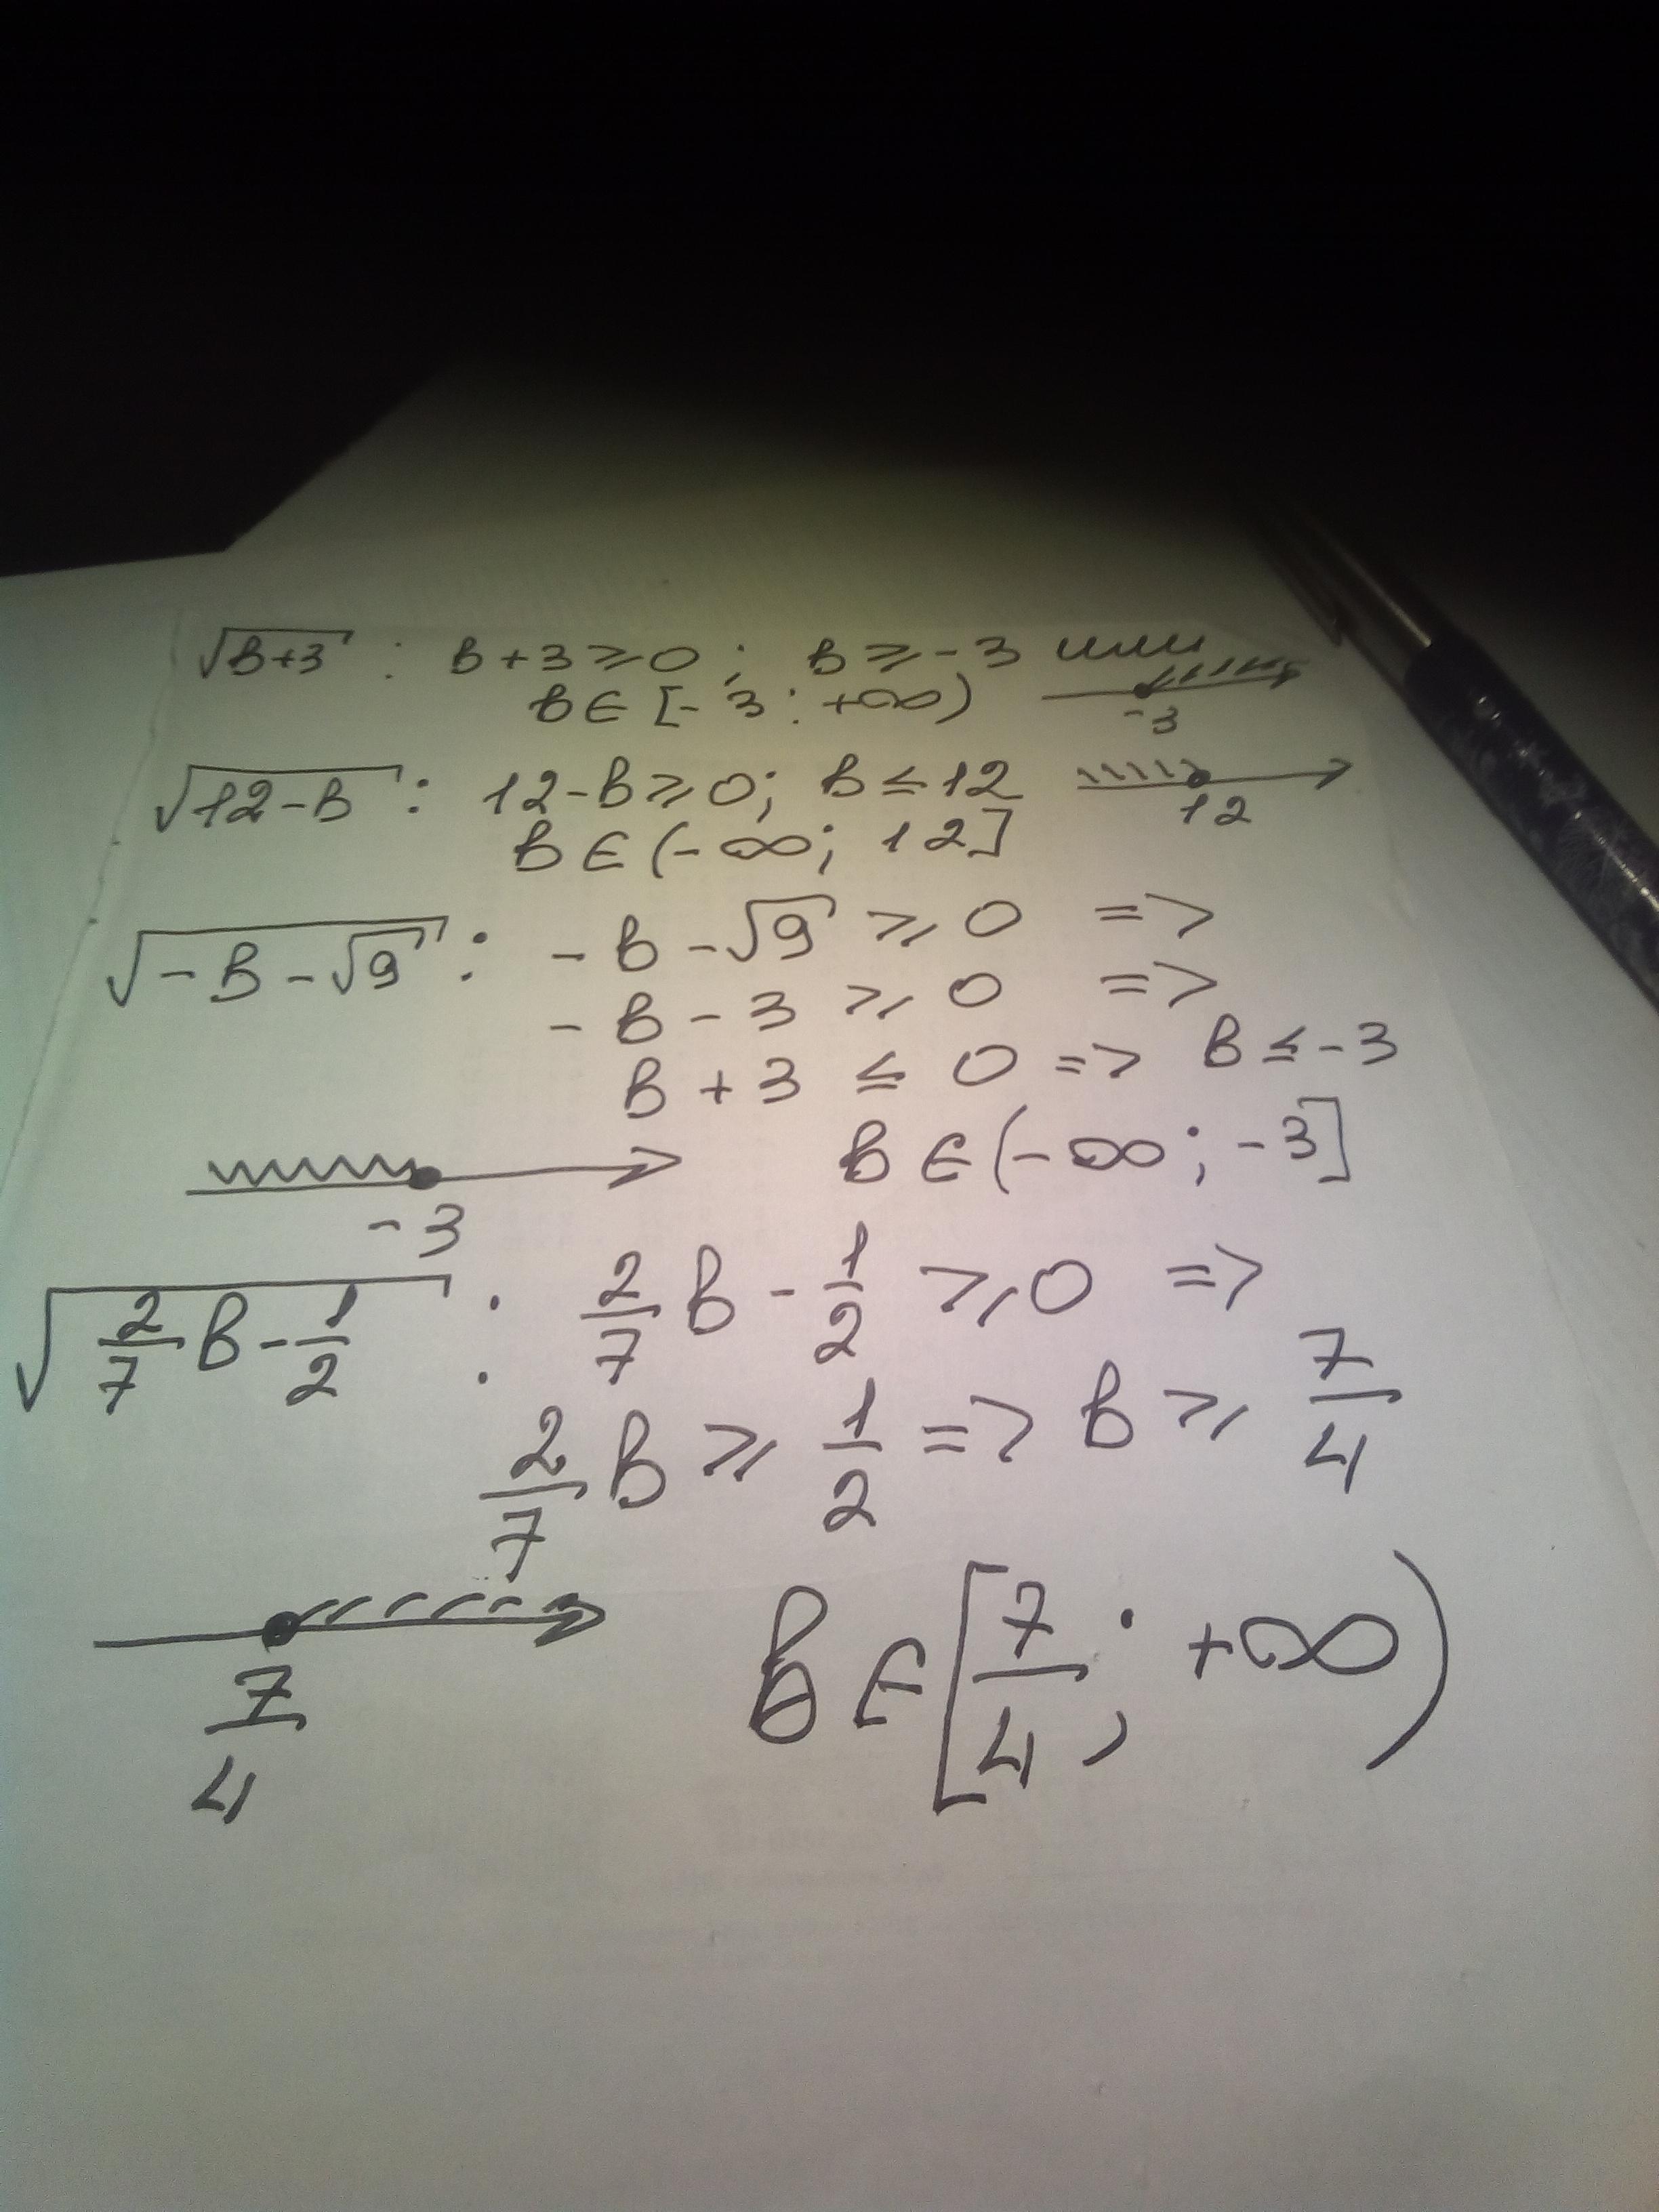 √(B+3) : B+3≥0; B≥-3 или
B∈[-3; +∞)
-3
√(12-B) : 12-B≥0; B≤12
12
B∈(-∞; 12]
√(-B-√9) : -B-√9≥0 =>
-B-3≥0 =>
B+3≤0 => B≤-3
B∈(-∞; -3]
-3
√(2/7 B - 1/2) : 2/7 B - 1/2 ≥0 =>
2/7 B ≥ 1/2 => B ≥ 7/4
B∈[7/4; +∞)
7/4